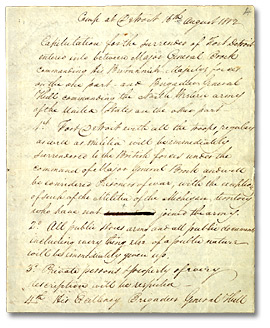 Camp at Detroit 16th August 1812
Capitulation for the surrender of Fort Detroit
entered into between Major General Brock
commanding his Britannick Majestys forces
on the one part, and Brigadier General
Hull commanding the North Western army
of the United States on the other part
1st Fort Detroit with all the troops regulars
as well as militia will be immediately
surrendered to the British forces under the
command of Major General Brock and will
be considered Prisoners of war, with the exception
of such of the Militia of the Michigan territory
who have not joined the army.
2d All public stores arms and all public documents
including every thing else of a public nature
will be immediately given up.
3d Private persons & property of every
description will be respected
4th His Excellency Brigadier General Hull